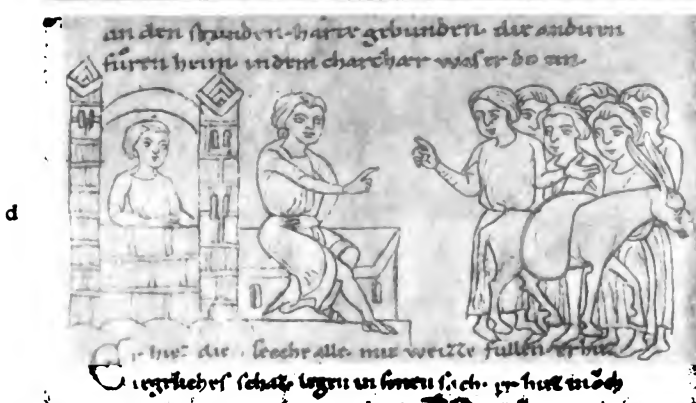 an den stunden. harte gebunden. die andiren
fůren heim. in dem charchær was er do ein.
d
hiez die secche alle. mit weizze fullen. er hiez
iegeliches schaz. legen in sinen sach. er hiez in och